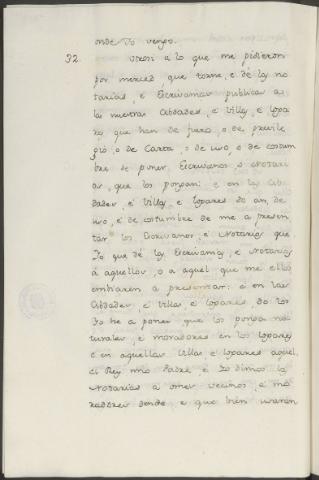 onde Yo venga.
32. Otrosi a lo que me pidieron
por merced que torne, e dé las no-
tarias, e Escrivanias publicas a
las nuestras Cibdades, e Villas, e Logares
que han de fuero, o de previle-
gio, o de Carta, o de uso, e de costum-
bre de poner, Escrivanos o Notari-
os, que los pongan: e en las Cib-
dades, e Villas, e Logares do an, de
uso, e de costumbre de me a presen-
tar los Escrivanos e Notarios que
Yo que dé las Escrivanias, e Notarias
á aquellos, o a aquel que me ellos
embiaren a presentar: e en las
Cibdades, e Villas e Logares do los
Yo he a poner que los ponga na-
turales, e moradores en los Logares
e en aquellas Villas e Logares aquel
el Rey mio Padre, e Yo dimos las
Notarias a omes vecinos, e mo-
radores dende e que bien usaron